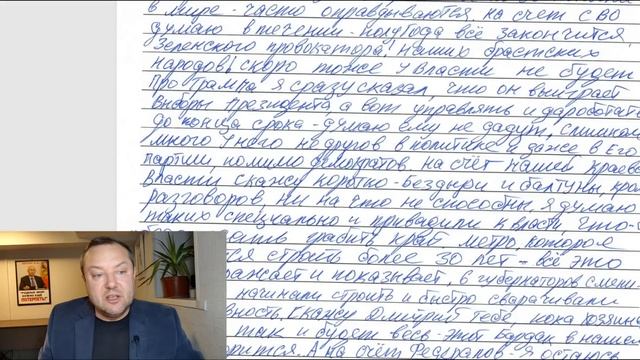 в мире - часто оправдываются, на счет СВО
думаю в течении - полугода всё закончится
Зеленского провокатора! наших братских
народов! скоро тоже у власти не будет
про трампа я сразу сказал, что он выиграет
выборы президента, а вот управлять и доработать
до конца срока - думаю ему не дадут, слишком
много у него недругов в политике и даже в его
партии, помимо демократов. на счёт нашей краевой
власти скажу коротко - бездной и балтуны, кроме
разговоров, ни на что не способны. я думаю
таких специально и приводили к власти, что-
грабить край, метро, которое
строить более 30 лет - всё это
и показывает, 8 губернаторов смени
начинали строить и быстро сварачивали
скажу Дмитрий тебе пока хозяина
так и будет весь - этот Бардак в нашем
А на счёт
ПОТЕРПЕТЬ!